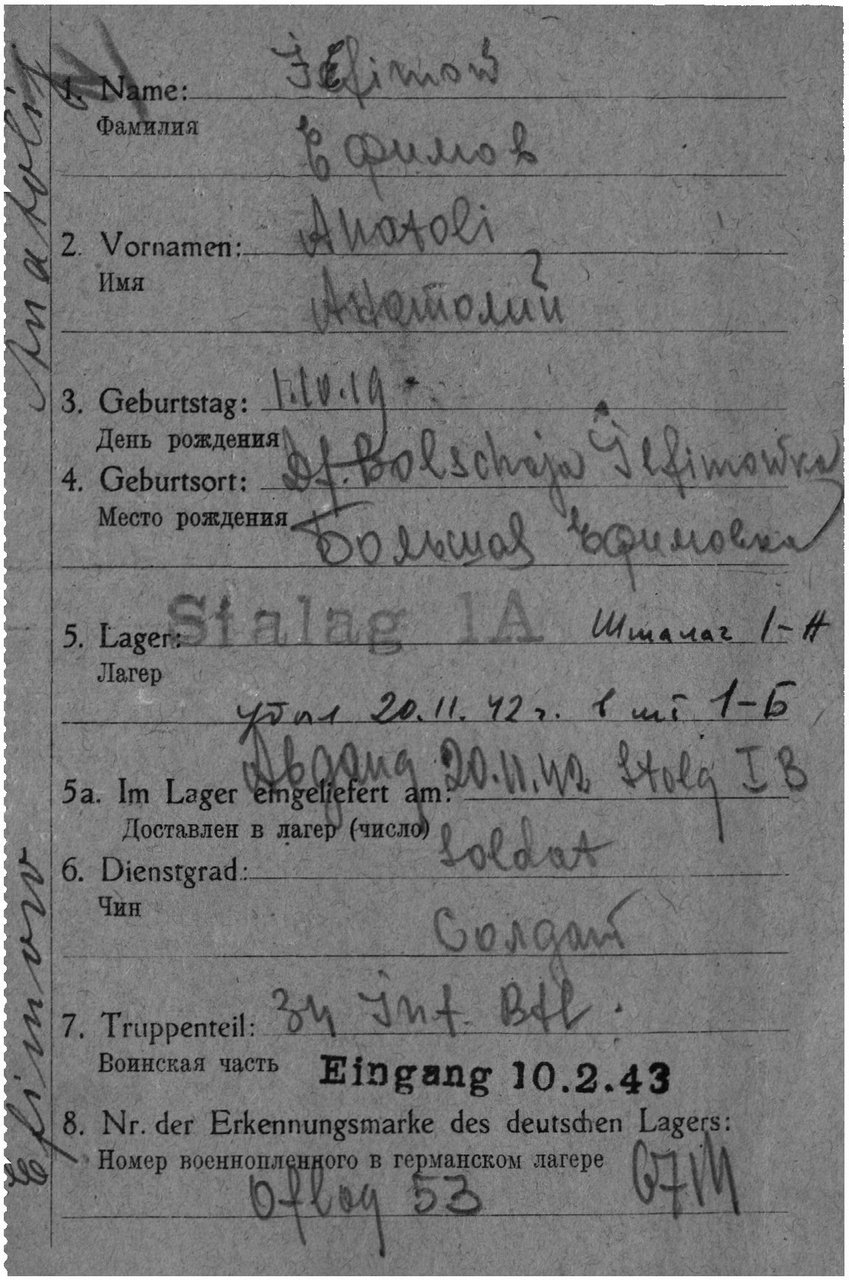 Efimow Anatolij
1. Name: Jefimow
Фамилия
Ефимов
2. Vornamen: Anatoli
Имя
Анатолий
3. Geburtstag: 1.10.19.
День рождения
4. Geburtsort: Df. Bolschaja Jefimowka
Место рождения
Большая Ефимовка
5. Lager: Stalag 1A Шталаг 1-А
Лагер
убыл 20.11.42 г. в шт 1-Б
Abgang 20.11.42 Stalg I B
5a. Im Lager eingeliefert am:
Доставлен в лагер (число)
6. Dienstgrad: Soldat
Чин
Солдат
7. Truppenteil: Inf. Btl.
Воинская часть
Eingang 10.2.43
8. Nr. der Erkennungsmarke des deutschen Lagers:
Номер военнопленного в германском лагере
Oflag 53